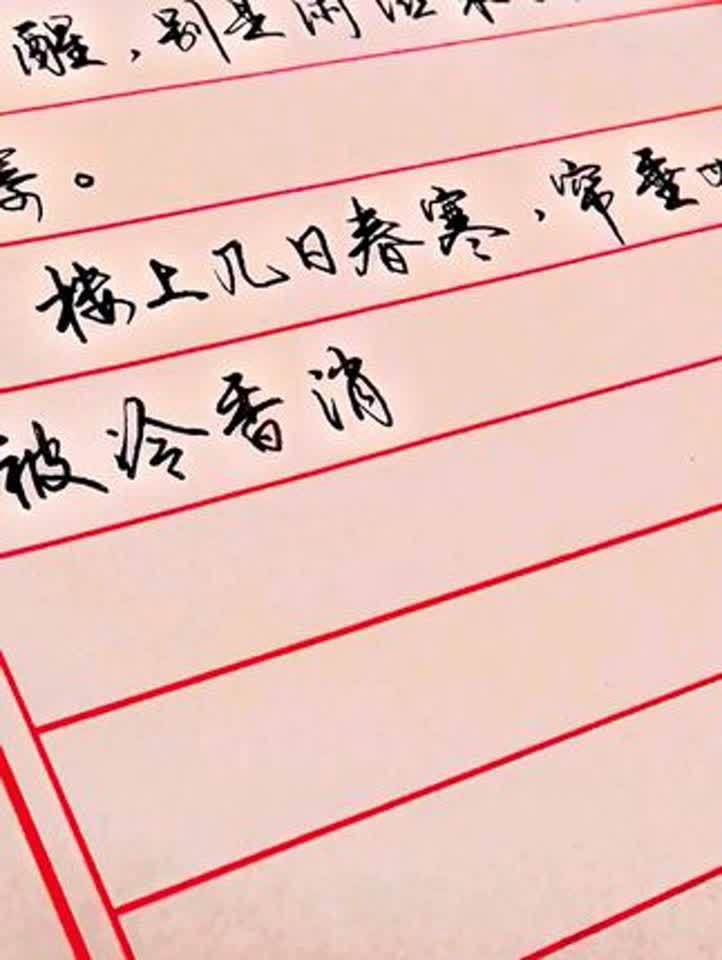 醒，别是闲滋
。
楼上几日春寒，帘垂
被冷香消